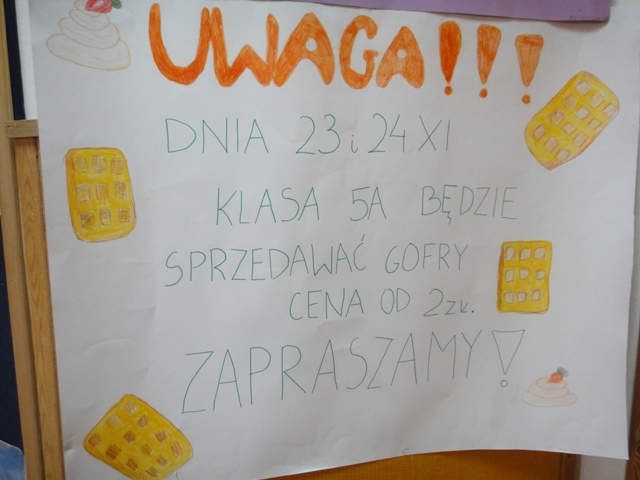 UWAGA!!!
DNIA 23 i 24 XI
KLASA 5A BĘDZIE
SPRZEDAWAĆ GOFRY
CENA OD 2 zł.
ZAPRASZAMY!